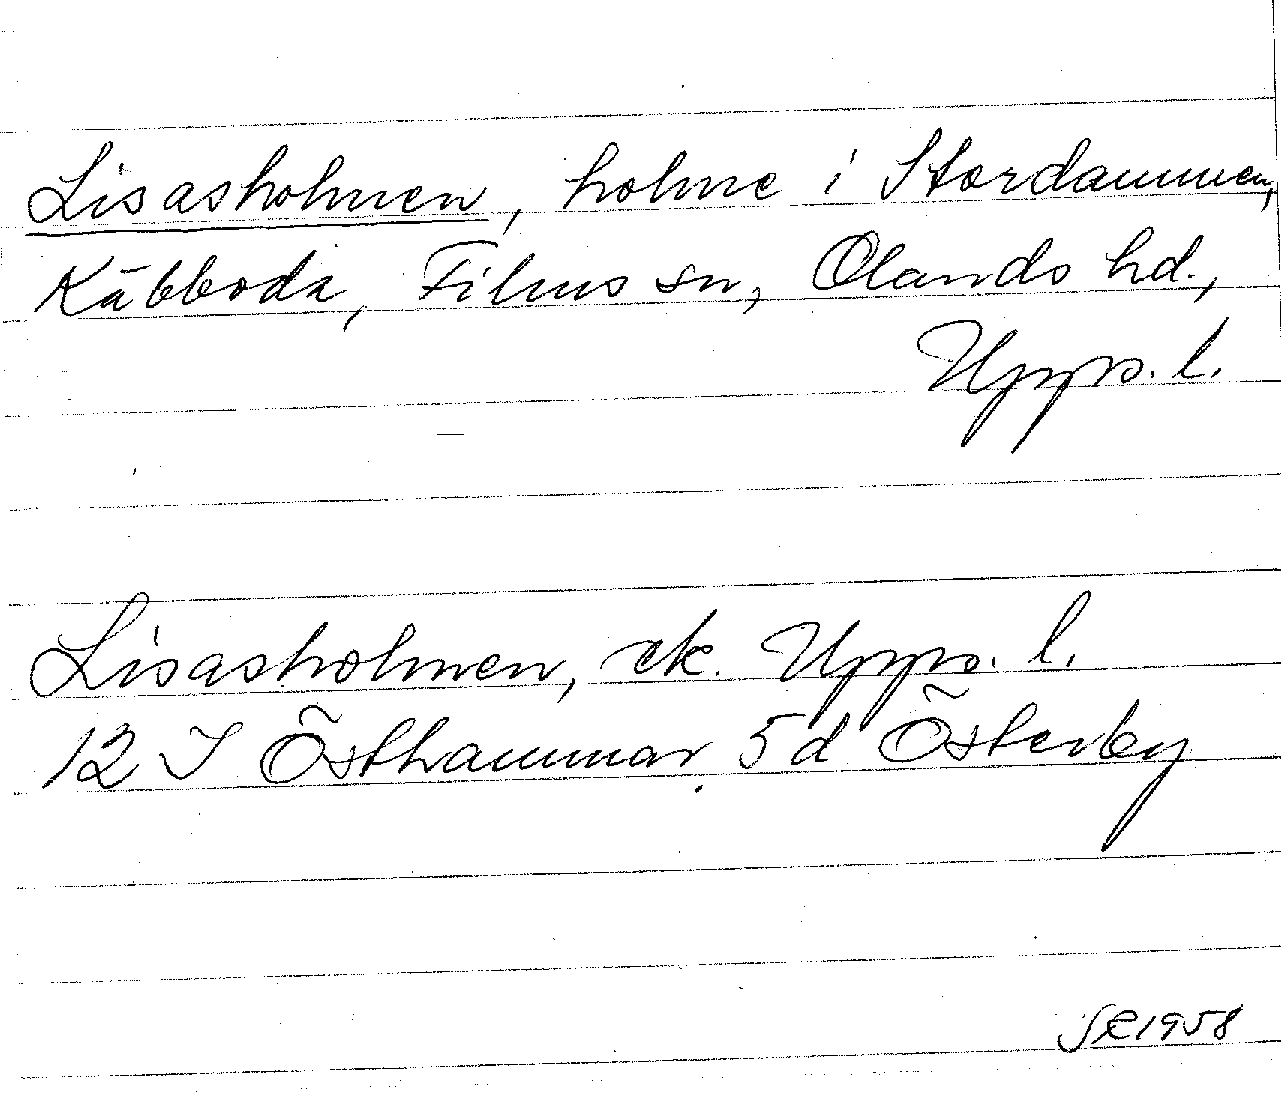 Lisasholmen, holme i Stordammen,
Käbboda, Films sn, Olands hd.,
Upps. l.
Lisasholmen, ek. Upps. l.
12 I Östhammar 5d Österby
SE 1958